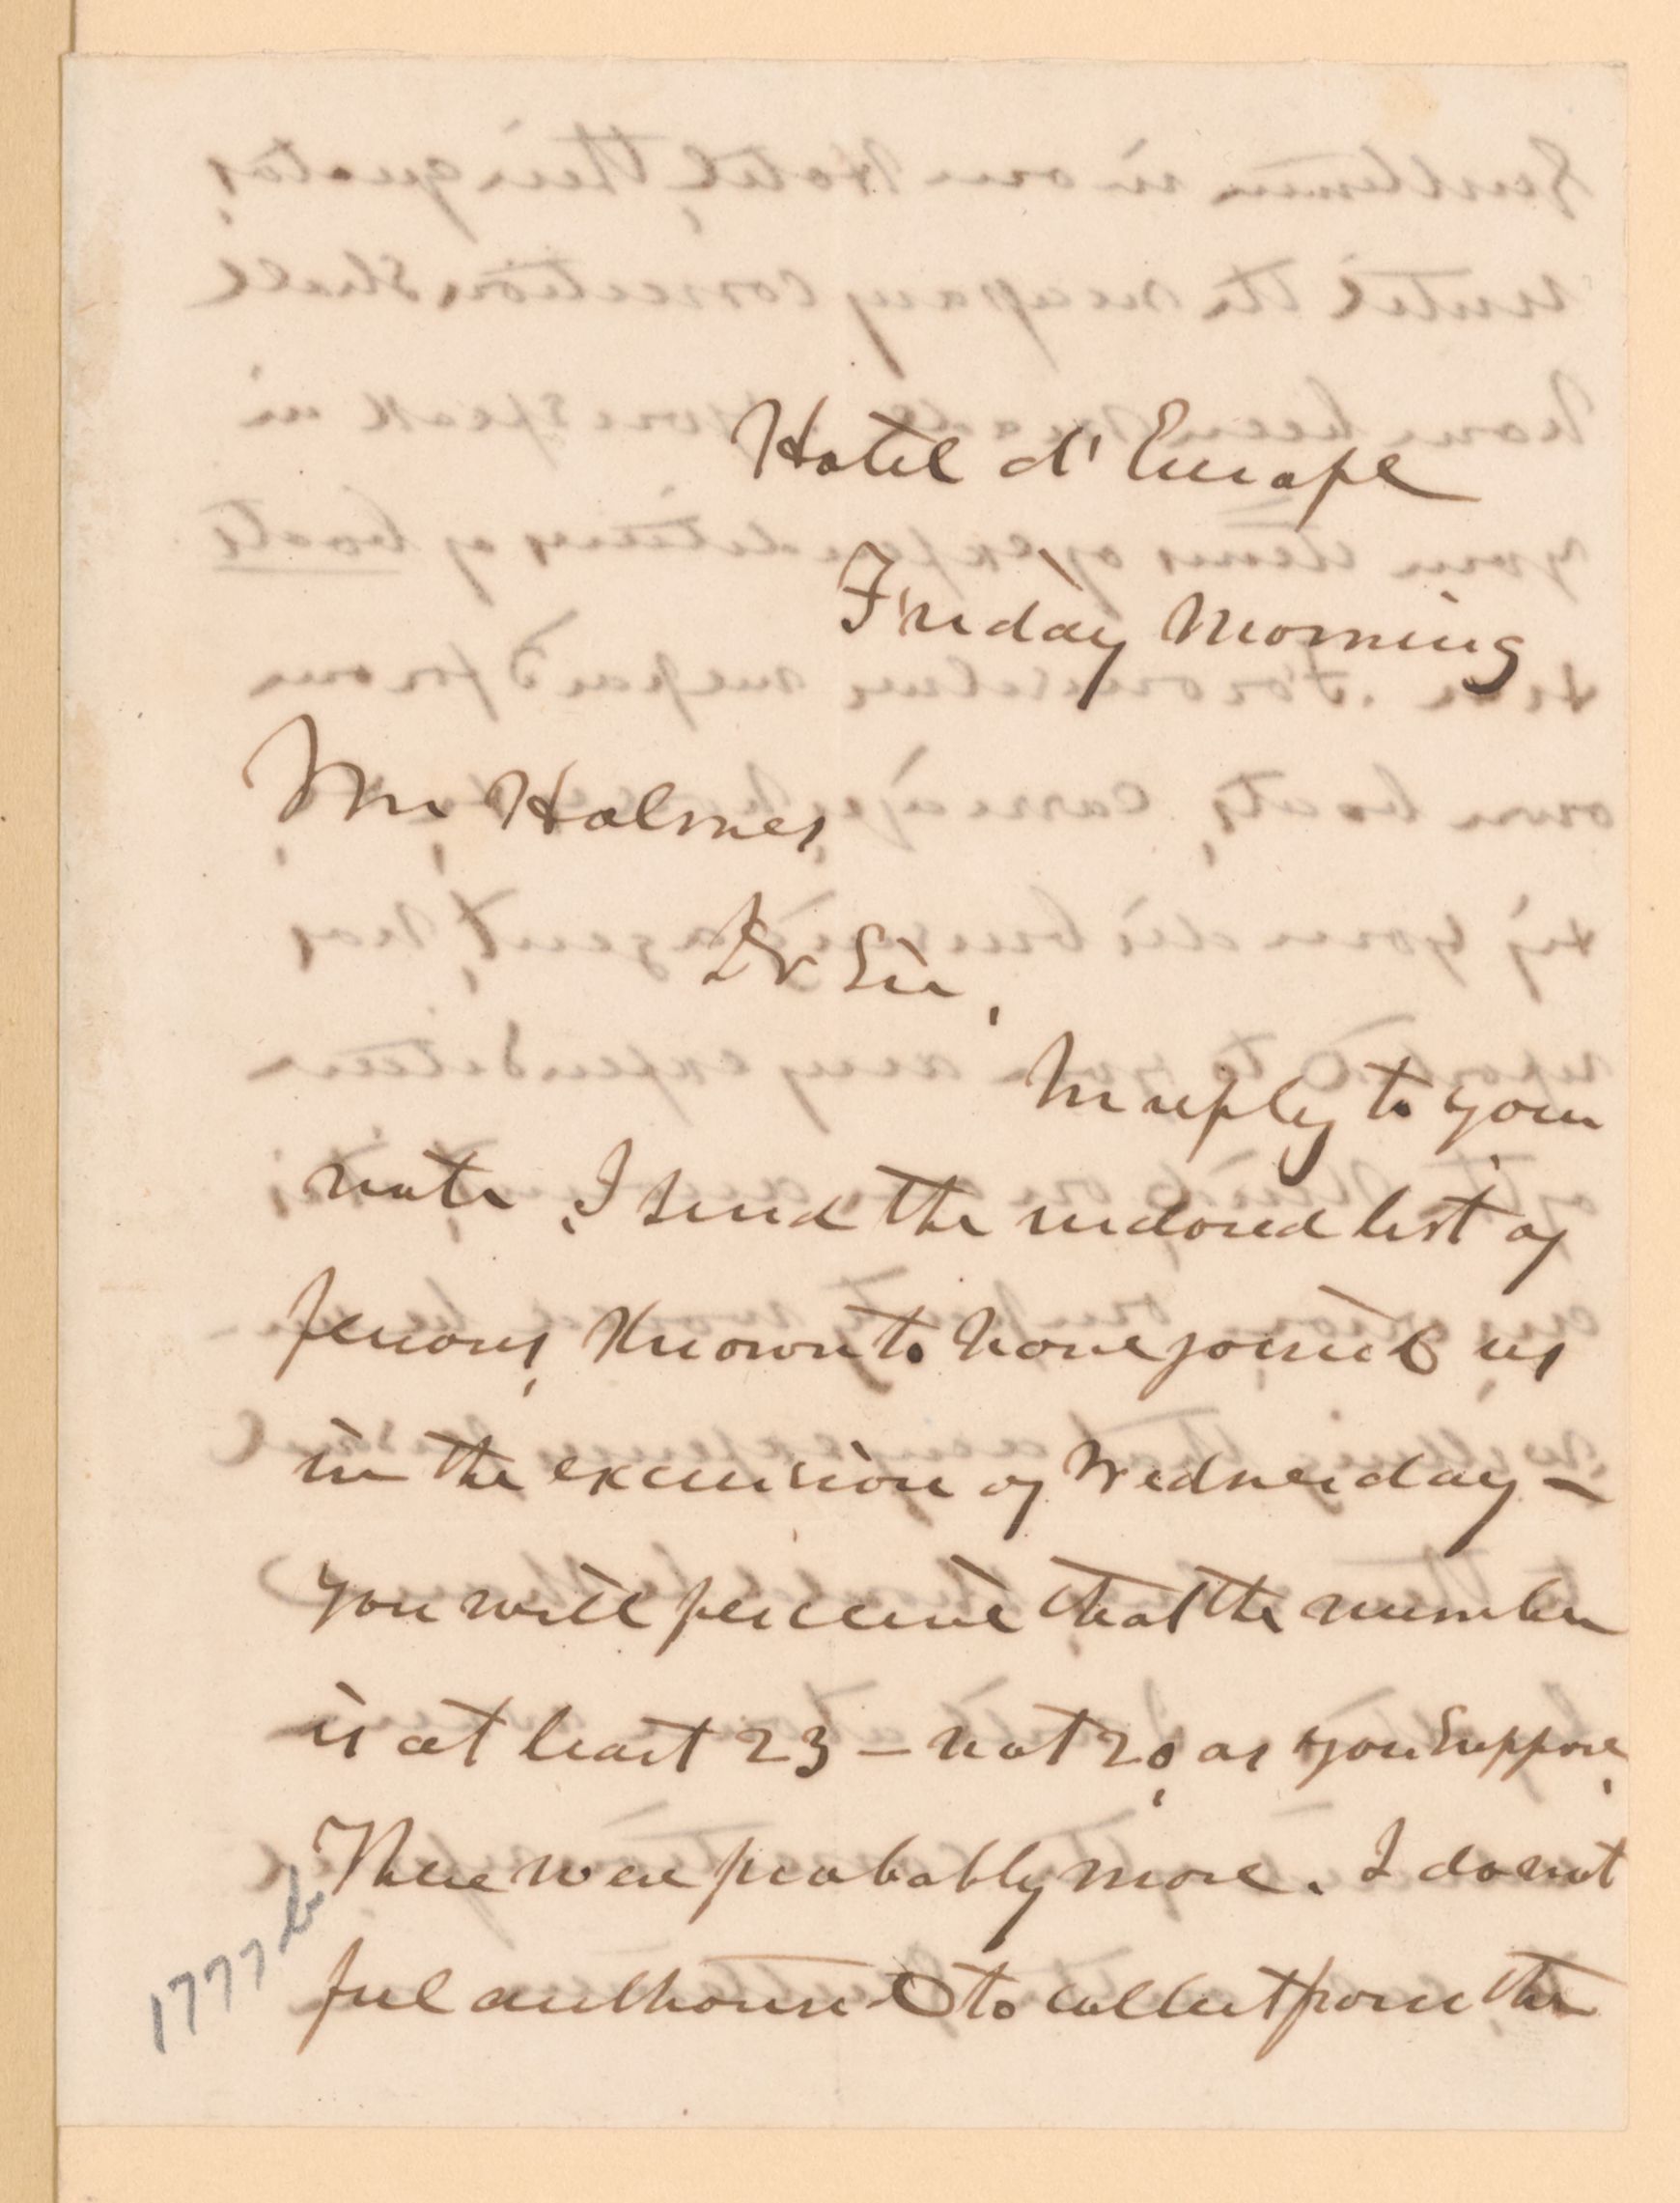 Hotel d'Europe
Friday Morning
Mr Holmes,
Dr Sir,
In reply to your
note, I send the inclosed list of
persons, known to have joined us
in the excursion of Wednesday –
you will perceive that the number
is at least 23 – not 20, as you suppose.
There were probably more. I do not
feel authorised to collect from the
1777 b